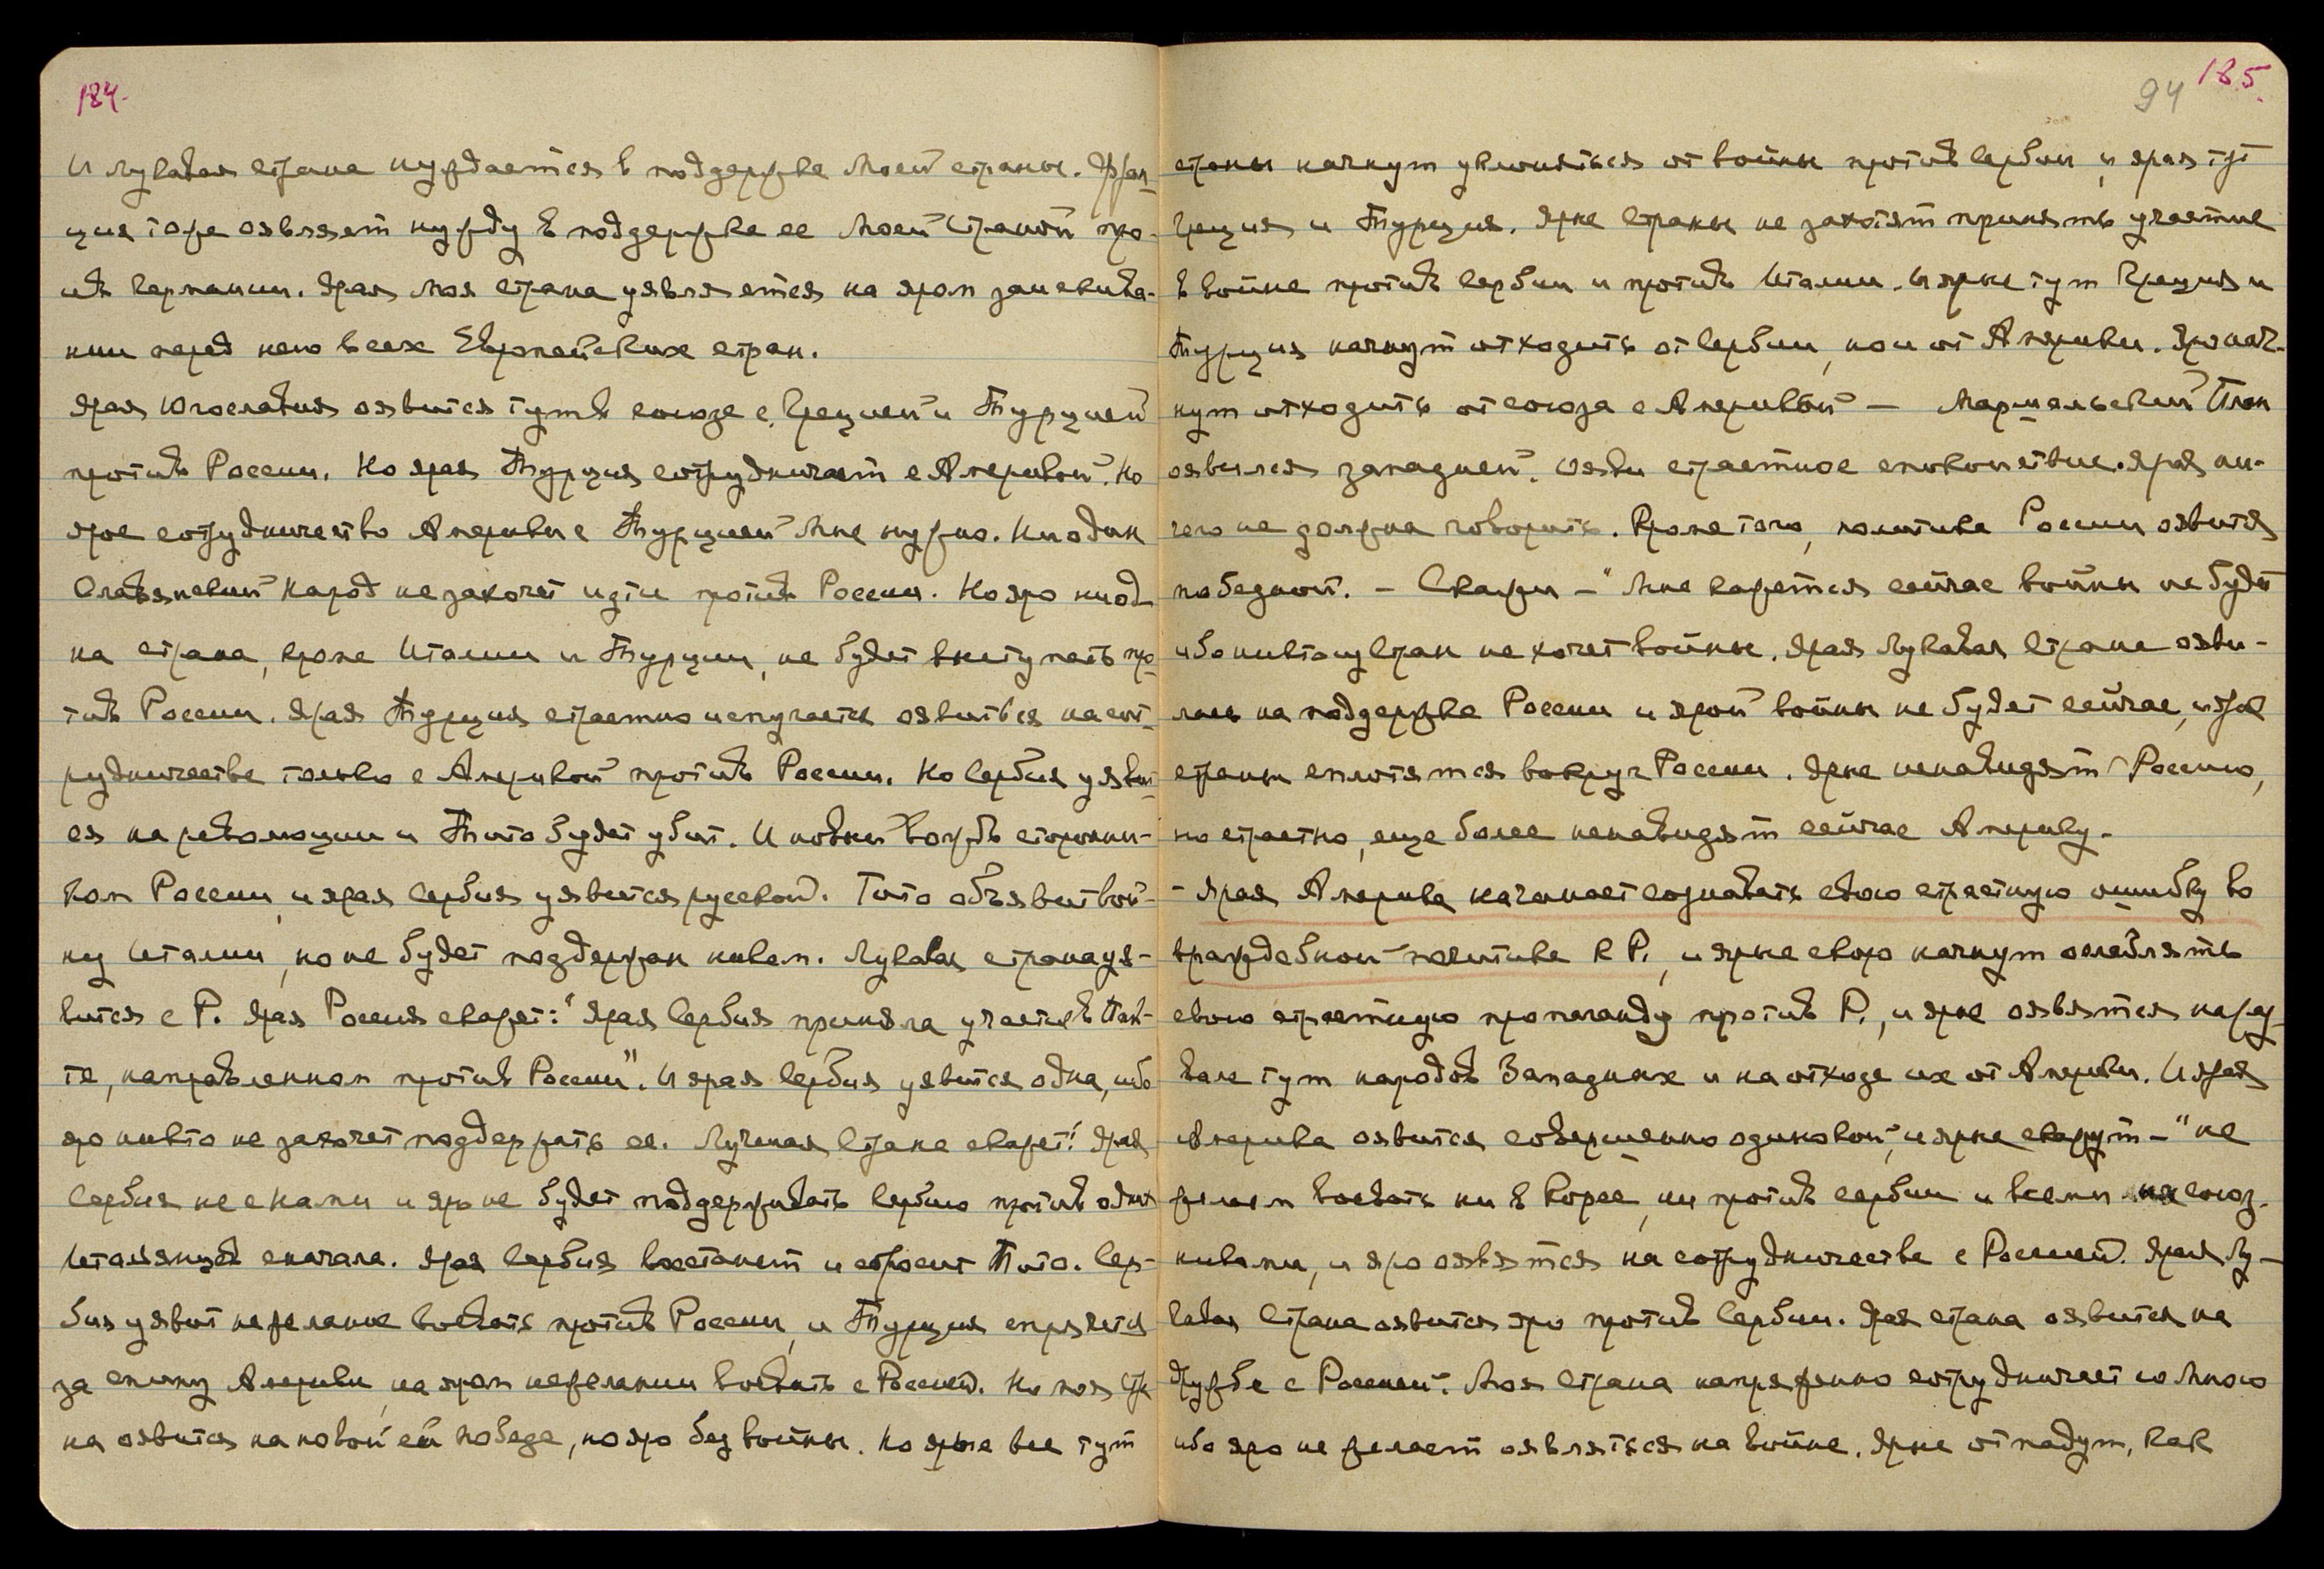 184.
И лукавая страна нуждается в поддержке Моей страны. Фран-
ция тоже оявляет нужду в поддержке ее Моей Страной про-
ив Германии. Ярая моя страна уявляется на яром заискива-
нии перед нею всех Европейских стран.
Ярая Югославия оявится тут в союзе с Грецией и Турцией
против России. Но ярая Турция сотрудничает с Америкой. Но
ярое сотрудничество Америки с Турцией Мне нужно. Ни один
Славянский народ не захочет идти против России. Но яро ни од-
на страна, кроме Италии и Турции, не будет выступать про-
тив России. Ярая Турция страстно испугается оявиться на сот-
рудничестве только с Америкой против России. Но Сербия уявит-
ся на революции и Тито будет убит. И новый вождь сторонни-
ком России, и ярая Сербия уявится русской. Тито объявит вой-
ну Италии, но не будет поддержан никем. Лукавая страна уя-
вится с Р. Ярая Россия скажет: "Ярая Сербия приняла участие в Пак-
те, направленном против России". И ярая Сербия уявится одна, ибо
яро никто не захочет поддержать ее. Лучшая Страна скажет: Ярая
Сербия не с нами и яро не будет поддерживать Сербию против одних
Итальянцев сначала. Ярая Сербия восстанет и сбросит Тито. Сер-
бия уявит нежелание воевать против России, и Турция спрячется
за спину Америки, на яром нежелании воевать с Россией. Но моя стра-
на оявится на новой ей победе, но яро без войны. Но ярые все тут
94 185.
страны начнут уклоняться от войны против Сербии, и ярая тут
Греция и Турция. Ярые Страны не захотят принять участие
в войне против Сербии и против Италии. И ярые тут Греция и
Турция начнут отходить от Сербии, но и от Америки. Яро нач-
нут отходить от союза с Америкой — Маршальский План
оявился западней. Ояви страстное спокойствие. Ярая ни-
чего не должна говорить. Кроме того, политика России оявится
победной. - Скажи - "Мне кажется сейчас войны не будет
ибо никто из стран не хочет войны. Ярая Лукавая Страна ояви-
лась на поддержке России и ярой войны не будет сейчас, и ярые
страны сплотятся вокруг России. Ярые ненавидят Россию,
но страстно, еще более ненавидят сейчас Америку.
- Ярая Америка начинает сознавать свою страстную ошибку во
враждебной политике к Р., и ярые скоро начнут ослаблять
свою страстную пропаганду против Р., и ярые оявятся на
тут народов Западных и на отходе их от Америки. И ярая
Америка оявится совершенно одинокой, и ярые скажут - "не
желаем воевать ни в Корее, ни против Сербии и всеми союз-
никами, и яро оявятся на сотрудничестве с Россией. Ярая Лу-
кавая Страна оявится яро против Сербии. Ярая страна оявится на
дружбе с Россией. Моя Страна напряженно сотрудничает со Мною
ибо яро не желает оявляться на войне. Ярые отпадут, как